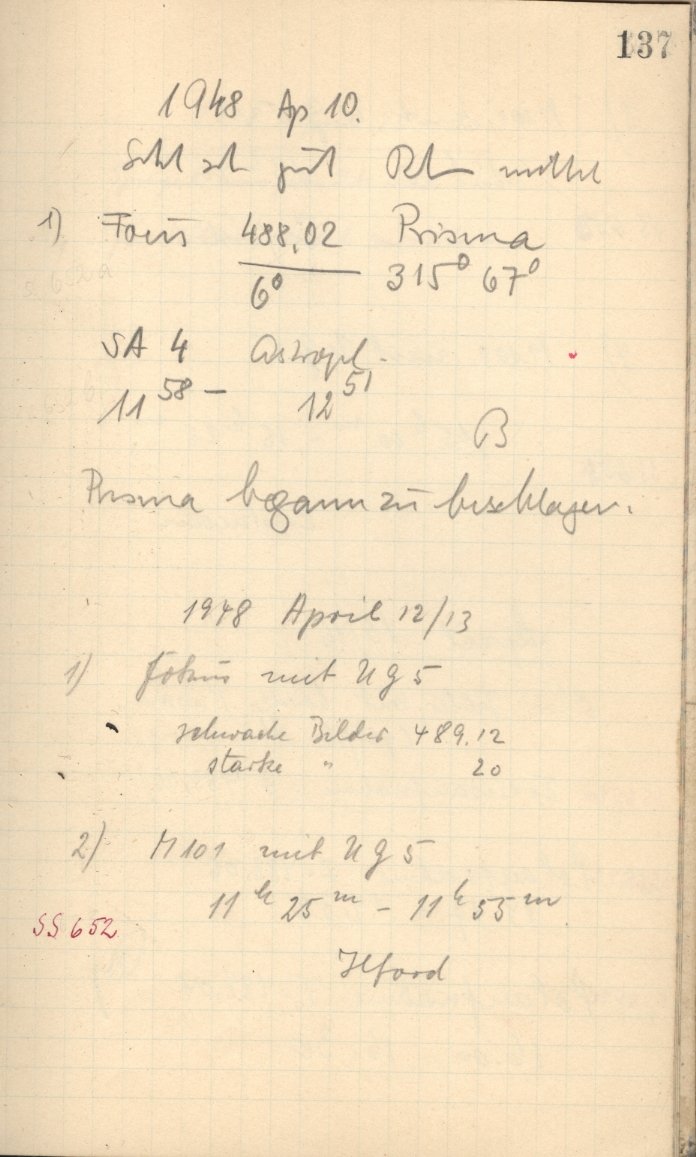 137
1948 Ap 10.
gut mittel
1) Focus 488,02 Prisma
6° 315° 67°
SA 4 Astropl.
11 58 - 12 51
B
Prisma begann zu beschlagen.
1948 April 12/13
1) Fokus mit UG 5
schwache Bilder 489.12
starke " 20
2) M101 mit UG 5
11 h 25 m - 11 h 55 m
SS 652
Ilford